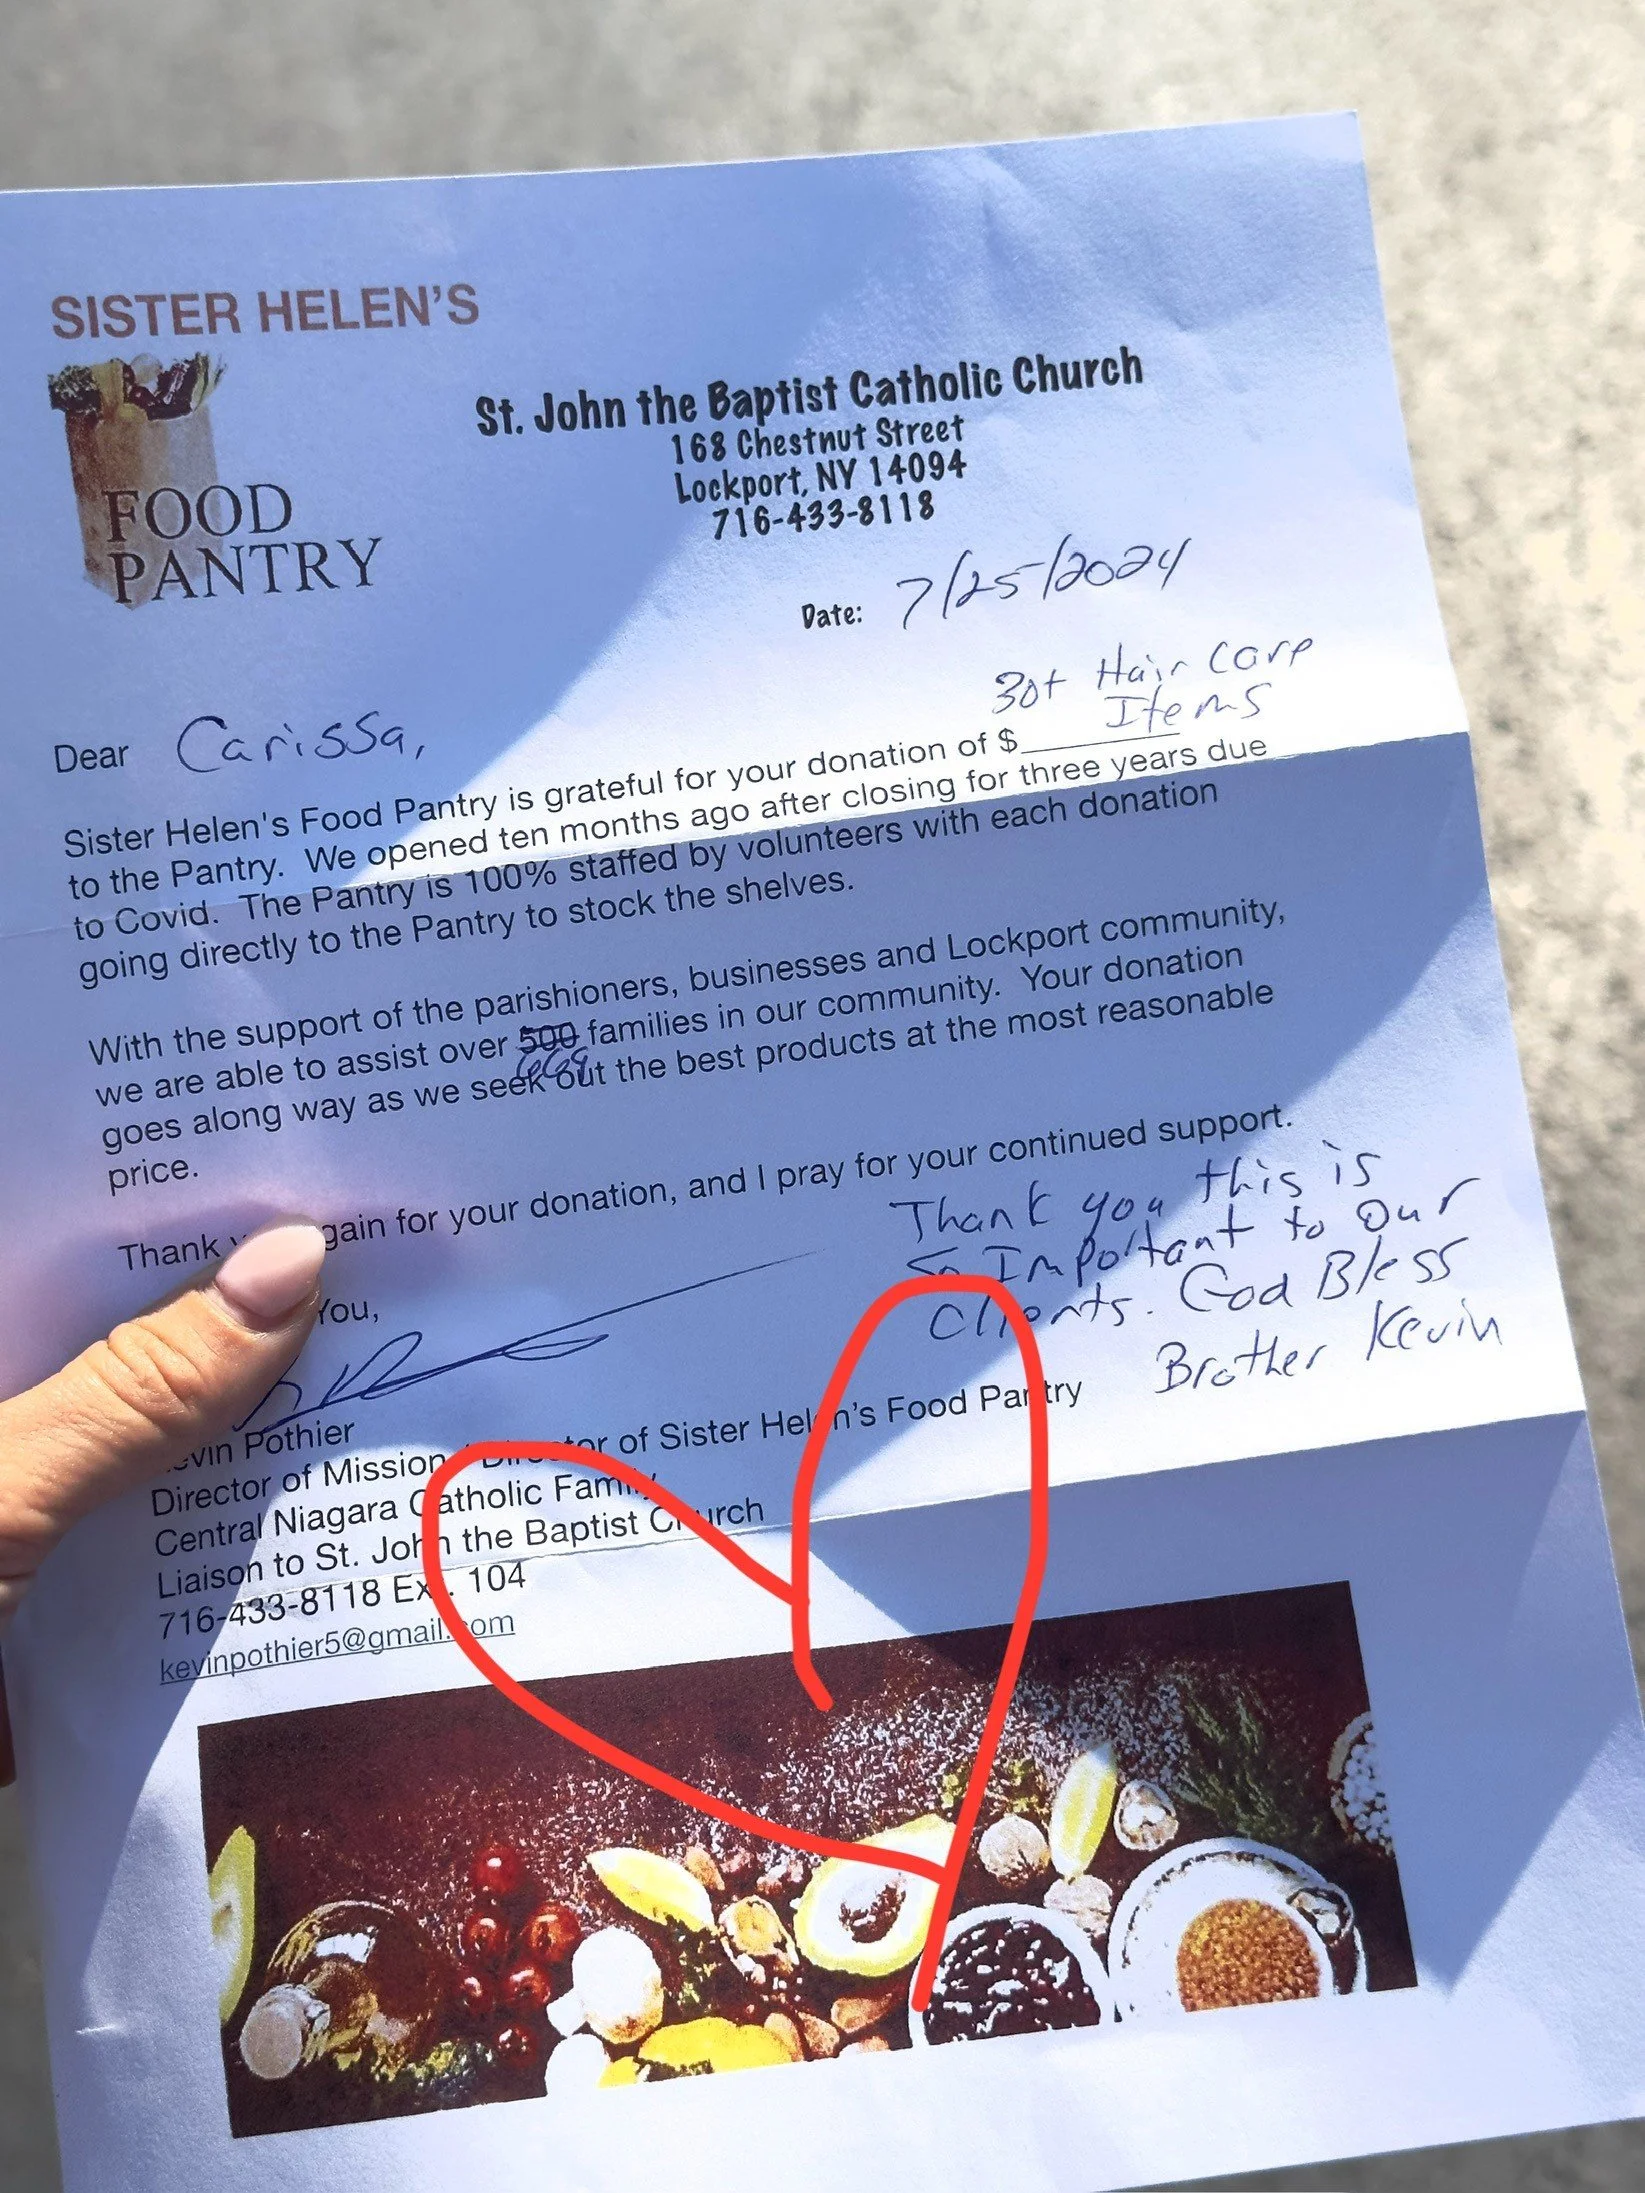 SISTER HELEN'S
FOOD
PANTRY
St. John the Baptist Catholic Church
168 Chestnut Street
Lockport, NY 14094
716-433-8118
Date: 7/25/2024
30+ Hair Care
Items
Dear Carissa,
Sister Helen's Food Pantry is grateful for your donation of $
to the Pantry. We opened ten months ago after closing for three years due
to Covid. The Pantry is 100% staffed by volunteers with each donation
going directly to the Pantry to stock the shelves.
With the support of the parishioners, businesses and Lockport community,
we are able to assist over 500 families in our community. Your donation
goes along way as we seek out the best products at the most reasonable
price.
Thank gain for your donation, and I pray for your continued support.
Thank you this is
So Important to Our
Clients. God Bless
Brother Kevin
You,
evin Pothier
Director of Mission Director of Sister Helen's Food Pantry
Central Niagara Catholic Family
Liaison to St. John the Baptist Church
716-433-8118 Ext. 104
kevinpothier5@gmail.com